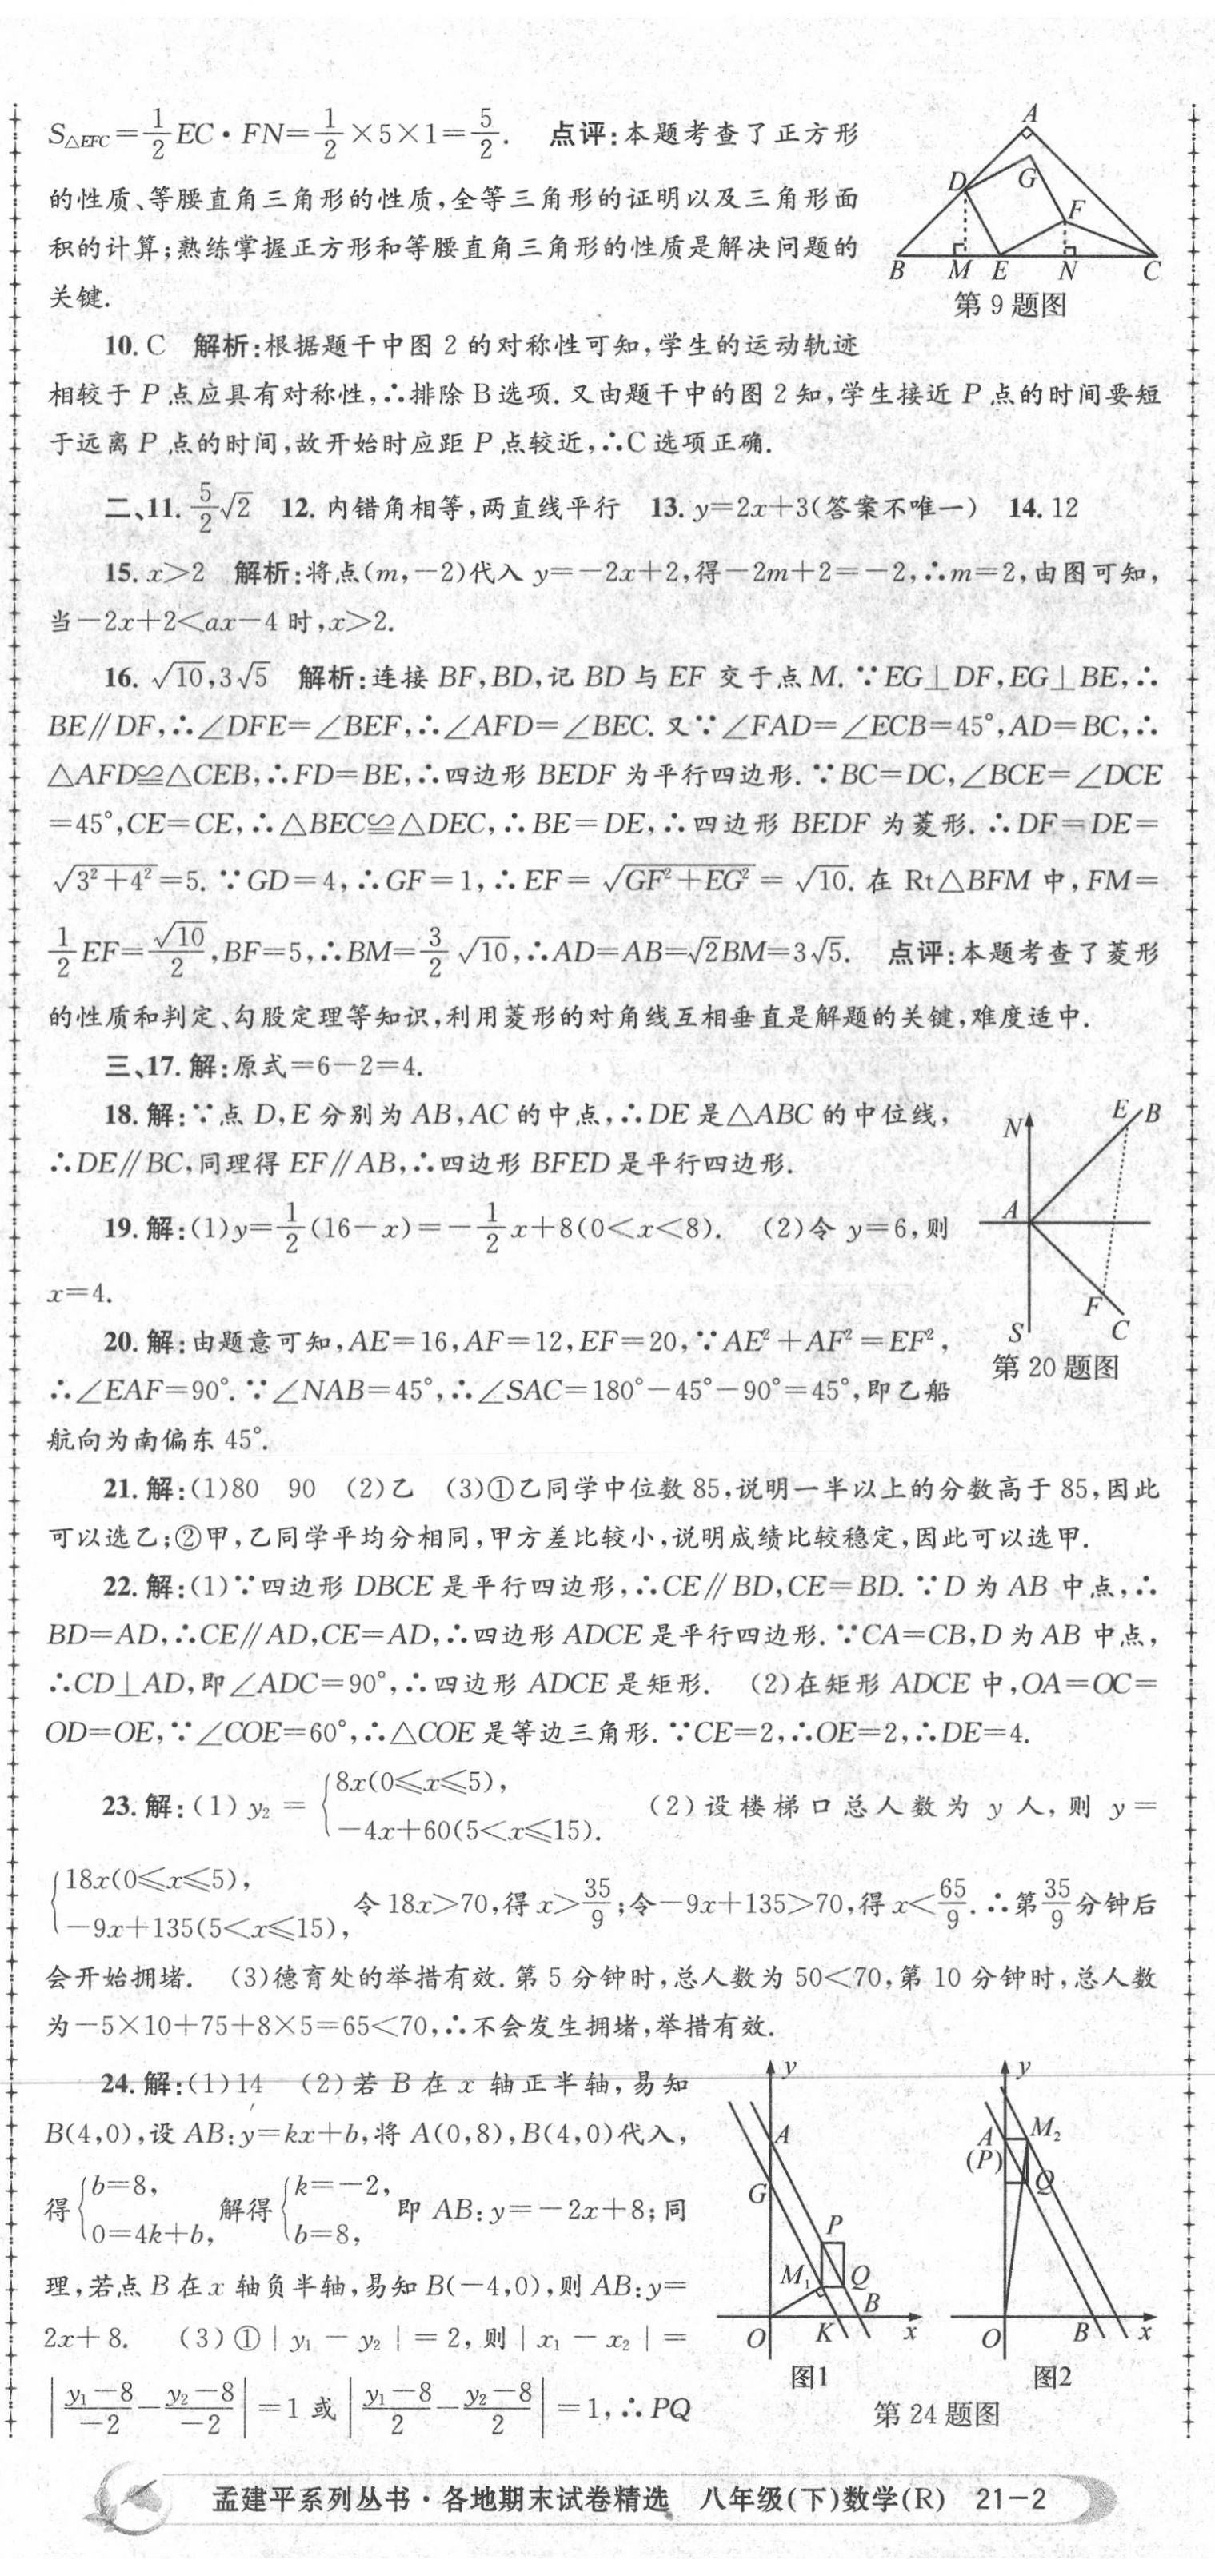 S△EFC=1/2EC·FN=1/2×5×1=5/2. 点评:本题考查了正方形
的性质、等腰直角三角形的性质,全等三角形的证明以及三角形面
积的计算;熟练掌握正方形和等腰直角三角形的性质是解决问题的
关键.
A
D G
F
B M E N C
第9题图
10. C 解析:根据题干中图2的对称性可知,学生的运动轨迹
相较于P点应具有对称性,∴排除B选项. 又由题干中的图2知,学生接近P点的时间要短
于远离P点的时间,故开始时应距P点较近,∴C选项正确.
二、11. 5/2√2 12. 内错角相等,两直线平行 13. y=2x+3(答案不唯一) 14. 12
15. x>2 解析:将点(m,-2)代入y=-2x+2,得-2m+2=-2,∴m=2,由图可知,
当-2x+2<ax-4时,x>2.
16. √10,3√5 解析:连接BF,BD,记BD与EF交于点M. ∵EG⊥DF,EG⊥BE,∴
BE∥DF,∴∠DFE=∠BEF,∴∠AFD=∠BEC. 又∵∠FAD=∠ECB=45°,AD=BC,∴
△AFD≌△CEB,∴FD=BE,∴四边形BEDF为平行四边形. ∵BC=DC,∠BCE=∠DCE
=45°,CE=CE,∴△BEC≌△DEC,∴BE=DE,∴四边形BEDF为菱形. ∴DF=DE=
√(3²+4²)=5. ∵GD=4,∴GF=1,∴EF=√(GF²+EG²)=√10. 在Rt△BFM中,FM=
1/2EF=√10/2,BF=5,∴BM=3/2√10,∴AD=AB=√2BM=3√5. 点评:本题考查了菱形
的性质和判定、勾股定理等知识,利用菱形的对角线互相垂直是解题的关键,难度适中.
三、17. 解:原式=6-2=4.
18. 解:∵点D,E分别为AB,AC的中点,∴DE是△ABC的中位线,
∴DE∥BC,同理得EF∥AB,∴四边形BFED是平行四边形.
19. 解:(1)y=1/2(16-x)=-1/2x+8(0<x<8). (2)令y=6,则
x=4.
N E B
A
F
S C
第20题图
20. 解:由题意可知,AE=16,AF=12,EF=20,∵AE²+AF²=EF²,
∴∠EAF=90°. ∵∠NAB=45°,∴∠SAC=180°-45°-90°=45°,即乙船
航向为南偏东45°.
21. 解:(1)80 90 (2)乙 (3)①乙同学中位数85,说明一半以上的分数高于85,因此
可以选乙;②甲,乙同学平均分相同,甲方差比较小,说明成绩比较稳定,因此可以选甲.
22. 解:(1)∵四边形DBCE是平行四边形,∴CE∥BD,CE=BD. ∵D为AB中点,∴
BD=AD,∴CE∥AD,CE=AD,∴四边形ADCE是平行四边形. ∵CA=CB,D为AB中点,
∴CD⊥AD,即∠ADC=90°,∴四边形ADCE是矩形. (2)在矩形ADCE中,OA=OC=
OD=OE,∵∠COE=60°,∴△COE是等边三角形. ∵CE=2,∴OE=2,∴DE=4.
23. 解:(1) y₂={8x(0≤x≤5), -4x+60(5<x≤15). (2)设楼梯口总人数为y人,则y=
{18x(0≤x≤5), -9x+135(5<x≤15), 令18x>70,得x>35/9;令-9x+135>70,得x<65/9. ∴第35/9分钟后
会开始拥堵. (3)德育处的举措有效. 第5分钟时,总人数为50<70,第10分钟时,总人数
为-5×10+75+8×5=65<70,∴不会发生拥堵,举措有效.
24. 解:(1)14 (2)若B在x轴正半轴,易知
B(4,0),设AB:y=kx+b,将A(0,8),B(4,0)代入,
得{b=8, 0=4k+b, 解得{k=-2, b=8, 即AB:y=-2x+8;同
理,若点B在x轴负半轴,易知B(-4,0),则AB:y=
2x+8. (3)①|y₁-y₂|=2,则|x₁-x₂|=
|(y₁-8)/(-2)-(y₂-8)/(-2)|=1或|(y₁-8)/2-(y₂-8)/2|=1,∴PQ
y
A
G
P
M₁ Q
B
O K x
图1
y
A M₂
(P)
Q
O B x
图2
第24题图
孟建平系列丛书·各地期末试卷精选 八年级(下)数学(R) 21-2